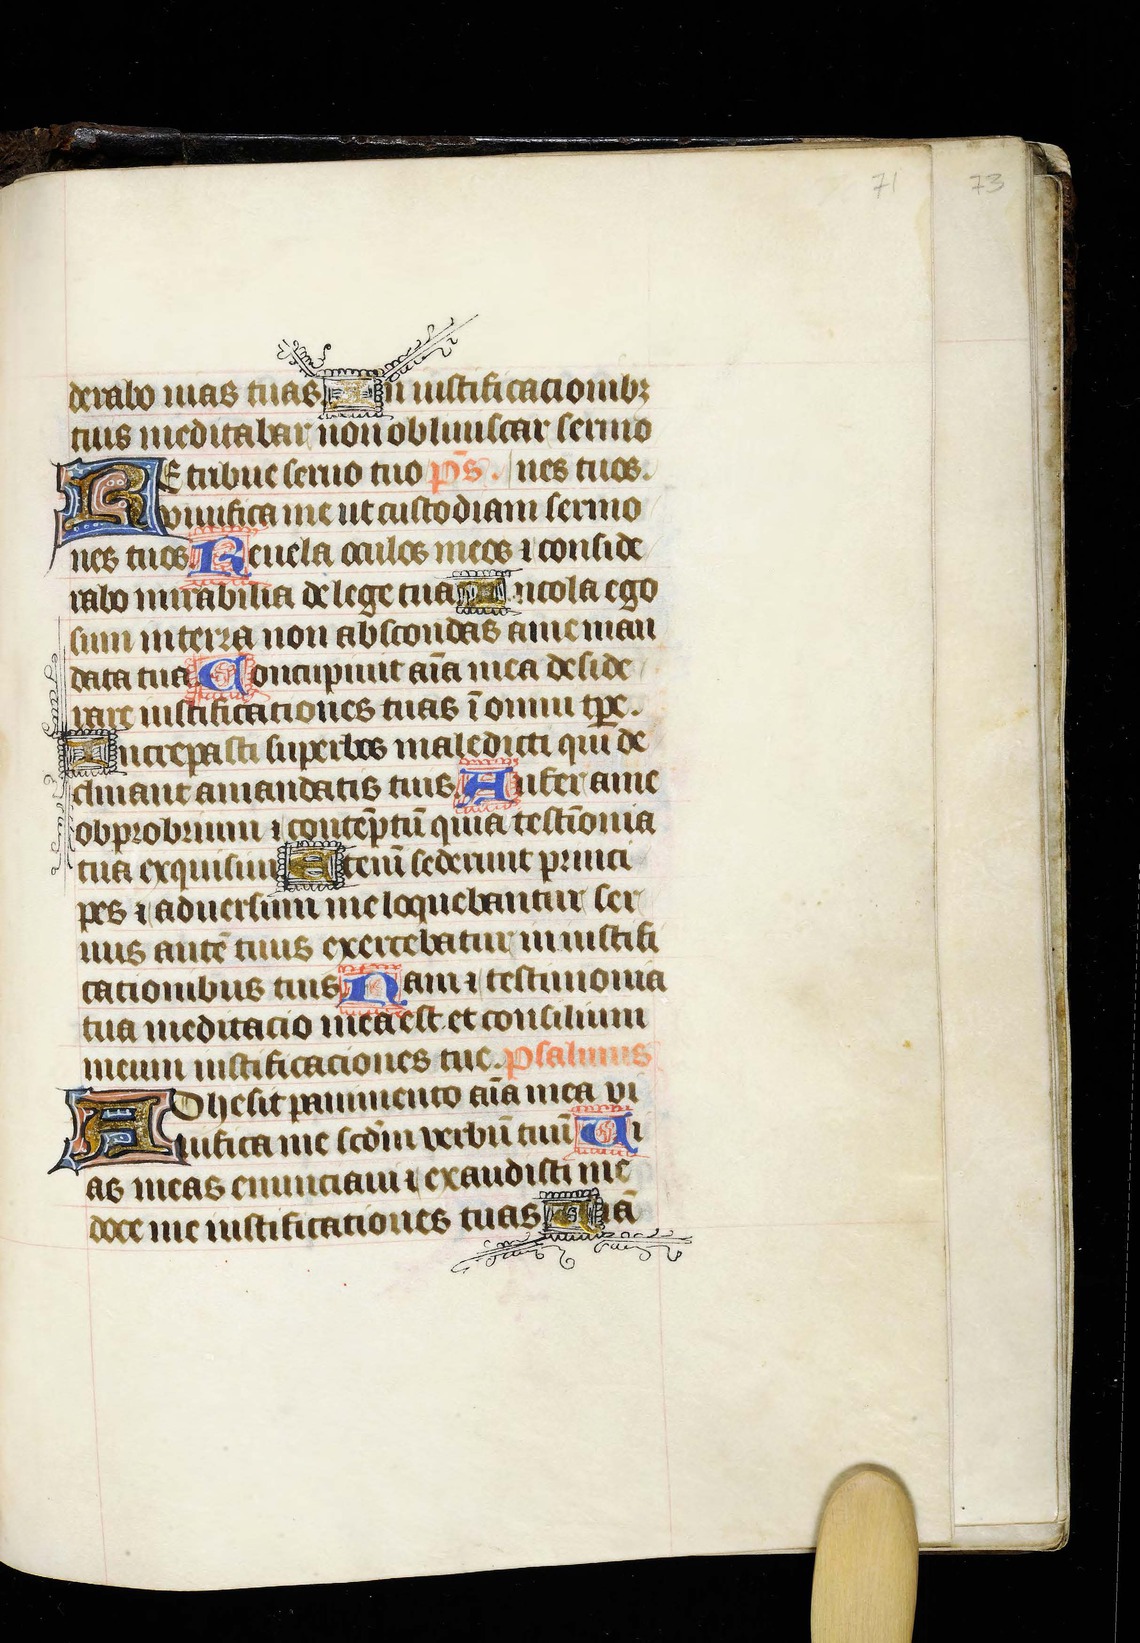 71
73
derabo uias tuas In iustificacionibꝫ
tuis meditabar non obliuiscar sermo
REtribue seruo tuo p̄s. nes tuos.
viuifica me ut custodiam sermo
nes tuos Reuela oculos meos ⁊ conside
rabo mirabilia de lege tua Incola ego
sum in terra non abscondas a me man
data tua Concupiuit aīa mea deside
rare iustificationes tuas ī omni tꝑe.
Increpasti superbos maledicti qui de
clinant a mandatis tuis. Aufer a me
obprobrium ⁊ contēptū quia testīonia
tua exquisiui Etenī sederunt princi
pes ⁊ aduersum me loquebantur ser
uus autē tuus exercebatur in iustifi
cationibus tuis Nam ⁊ testimonia
tua meditacio mea est et consilium
meum iustificaciones tue. psalmus
ADhesit pauimento aīa mea vi
uifica me scd̄m verbū tuū Vi
as meas enunciaui ⁊ exaudisti me
doce me iustificationes tuas Viā